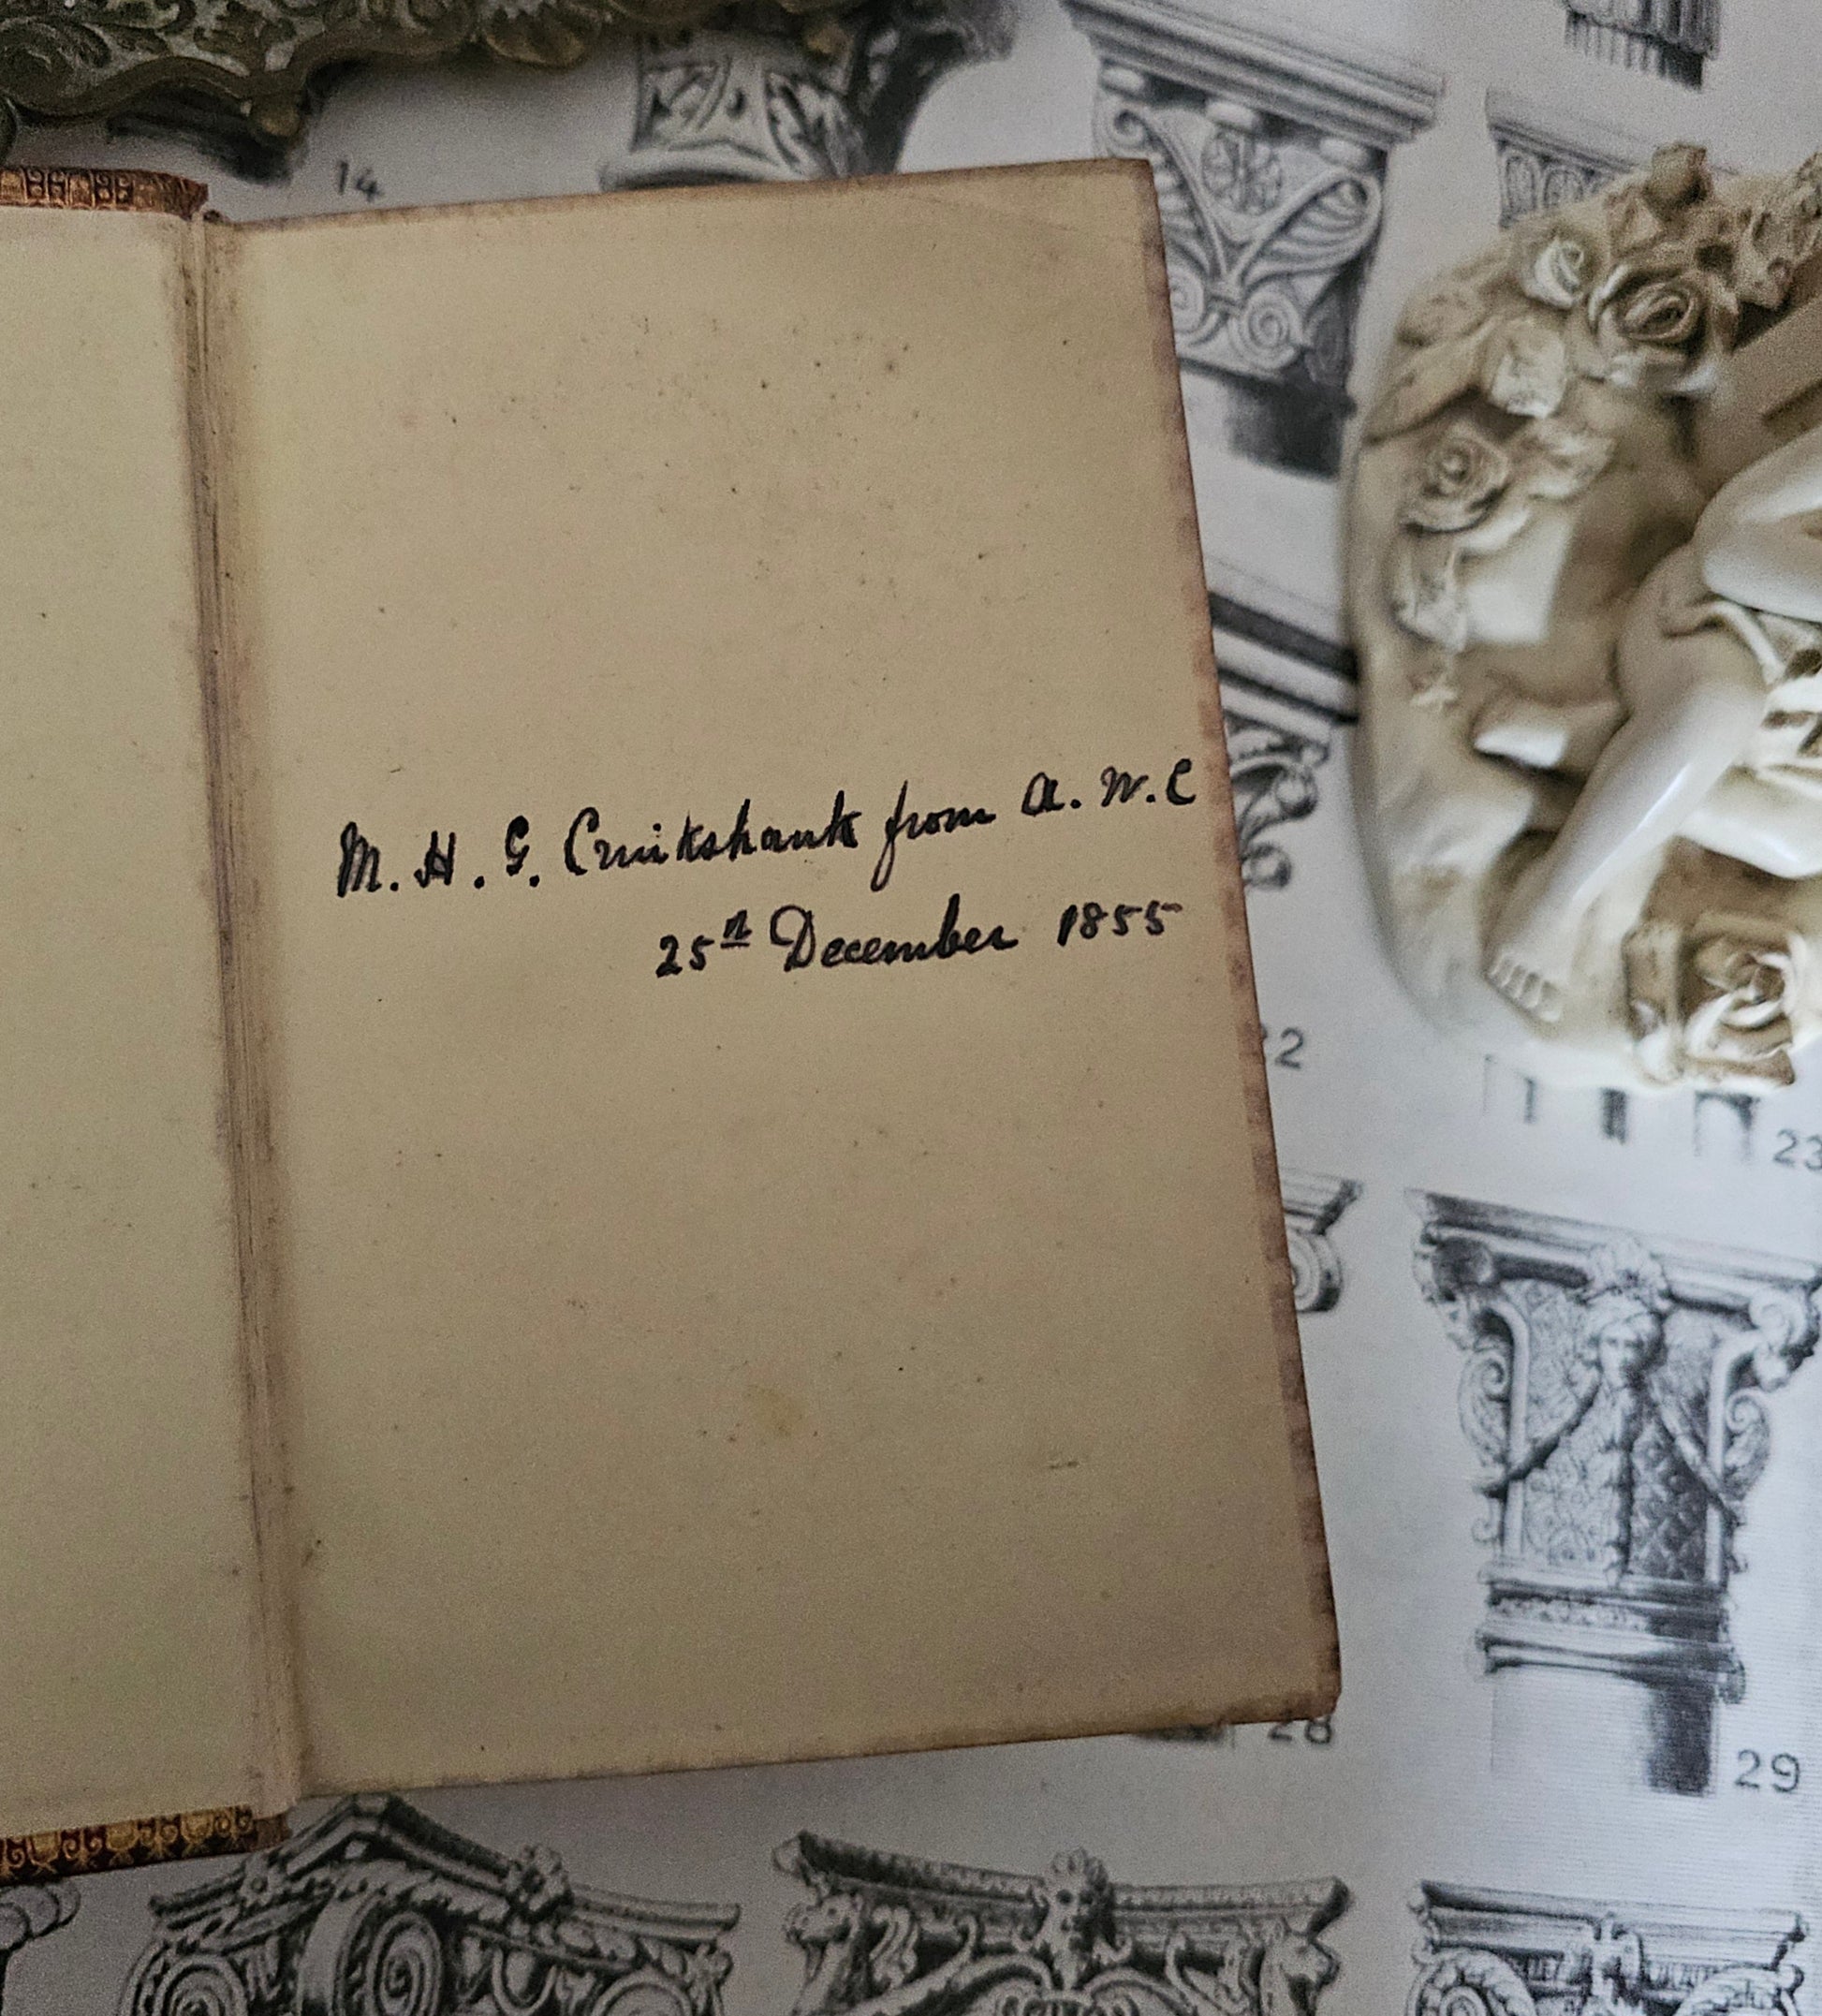 14
M. H. G. Cruikshank from A. W. C
25th December 1855
22
23
28
29